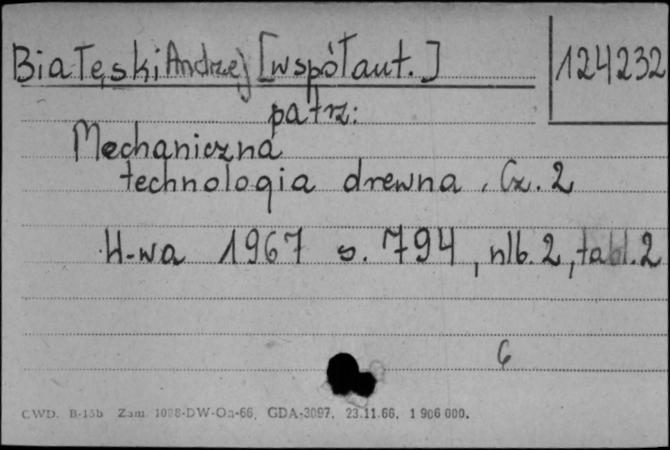 Białęski Andrzej [współaut.] 124232
patrz:
Mechaniczna
technologia drewna. Cz. 2
W-wa 1967 s. 794, nlb. 2, tabl. 2
6
CWD. B-15b Zam. 1098-DW-Oa-66, GDA-3097, 23.11.66. 1 906 000.